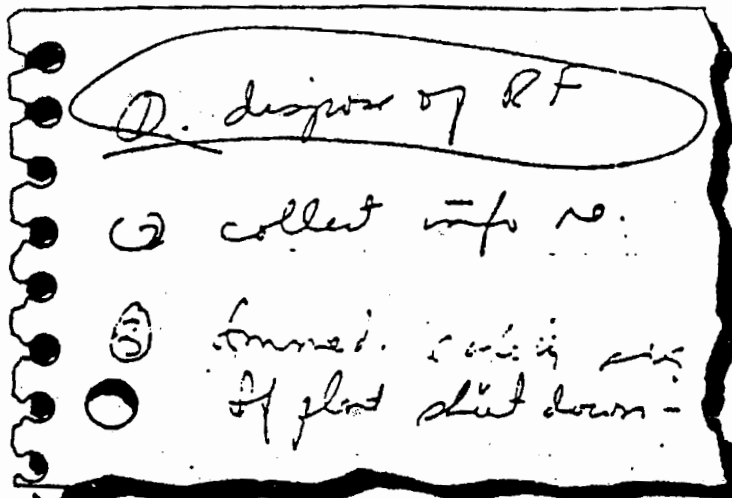 ①. dispose of RF
② collect info re.
③
If plant shut down -